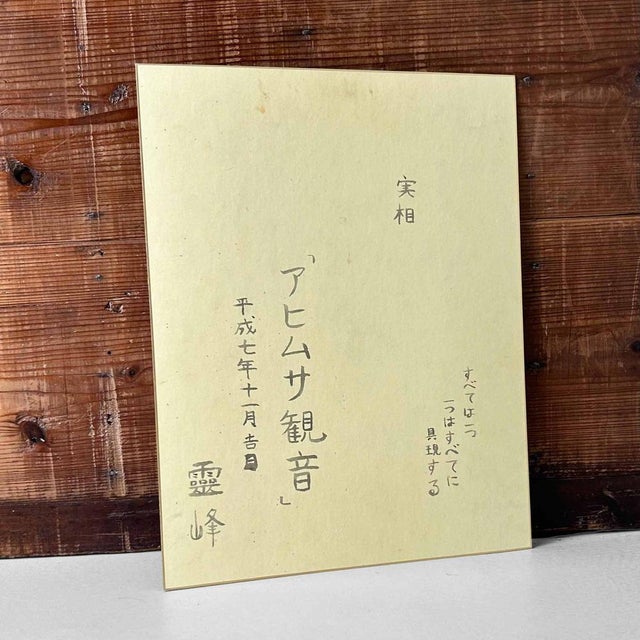 実相
すべては一つ
一つはすべてに
具現する
「アヒムサ観音」
平成七年十一月吉日
靈峰